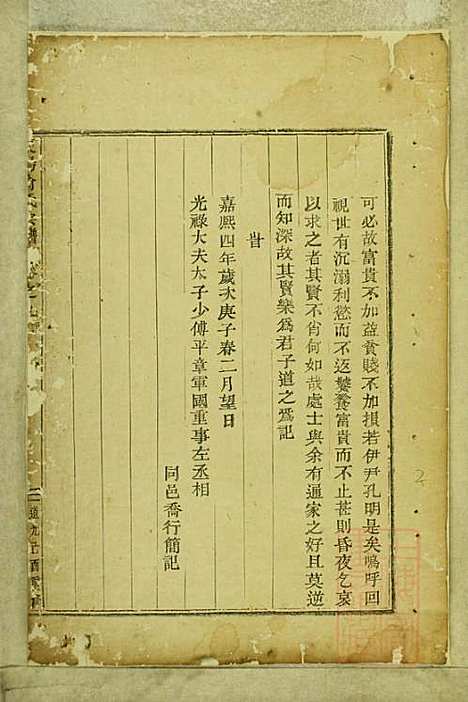 可必故富貴不加益貧賤不加損若伊尹孔明是矣嗚呼回
視世有沉溺利慾而不返饕餮富貴而不止甚則昏夜乞哀
以求之者其賢不肖何如哉處士與余有通家之好且莫逆
而知深故其賢樂為君子道之為記
旹
嘉熙四年歲次庚子春二月望日
光祿大夫太子少傅平章軍國重事左丞相
同邑喬行簡記